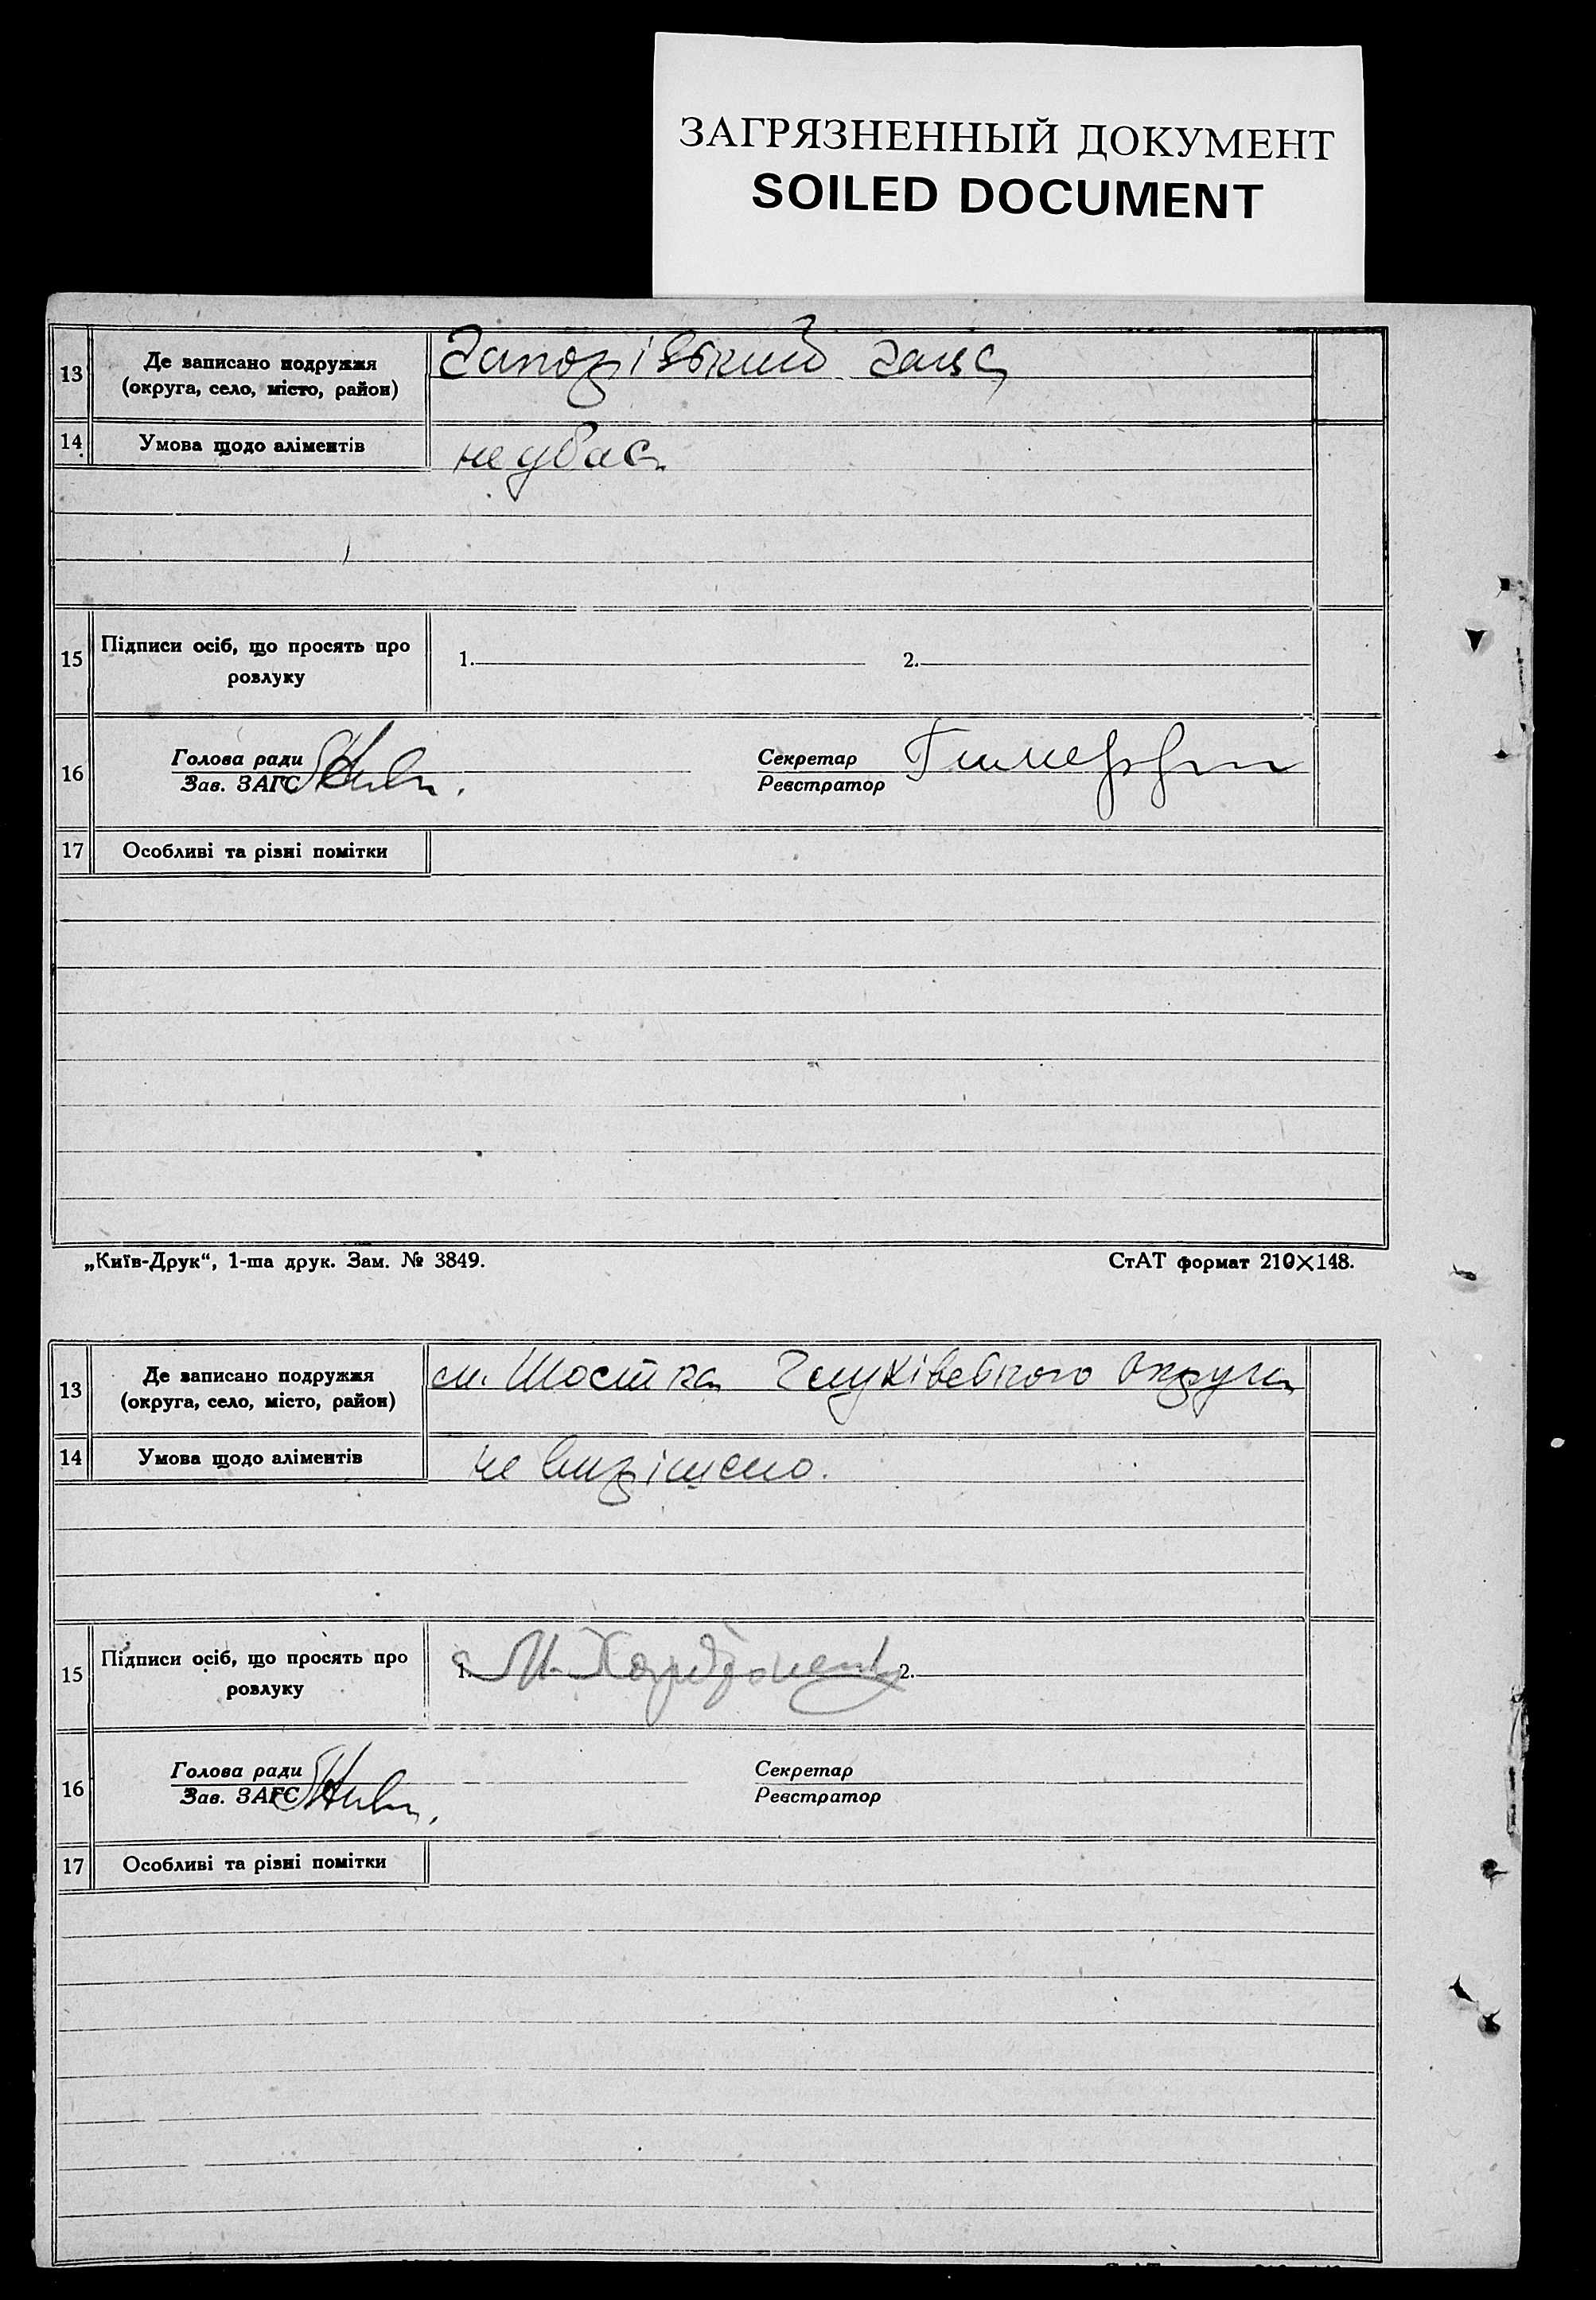 ЗАГРЯЗНЕННЫЙ ДОКУМЕНТ
SOILED DOCUMENT
13 Де записано подружжя
(округа, село, місто, район)
14 Умова щодо аліментів
15 Підписи осіб, що просять про
розлуку
1. 2.
16 Голова ради
Зав. ЗАГС
Секретар
Реєстратор
17 Особливі та різні помітки
„Київ-Друк“, 1-ша друк. Зам. № 3849. СтАТ формат 210×148.
13 Де записано подружжя
(округа, село, місто, район)
м. Шостка Глухівського округа
14 Умова щодо аліментів
не вирішено.
15 Підписи осіб, що просять про
розлуку
1. 2.
16 Голова ради
Зав. ЗАГС
Секретар
Реєстратор
17 Особливі та різні помітки